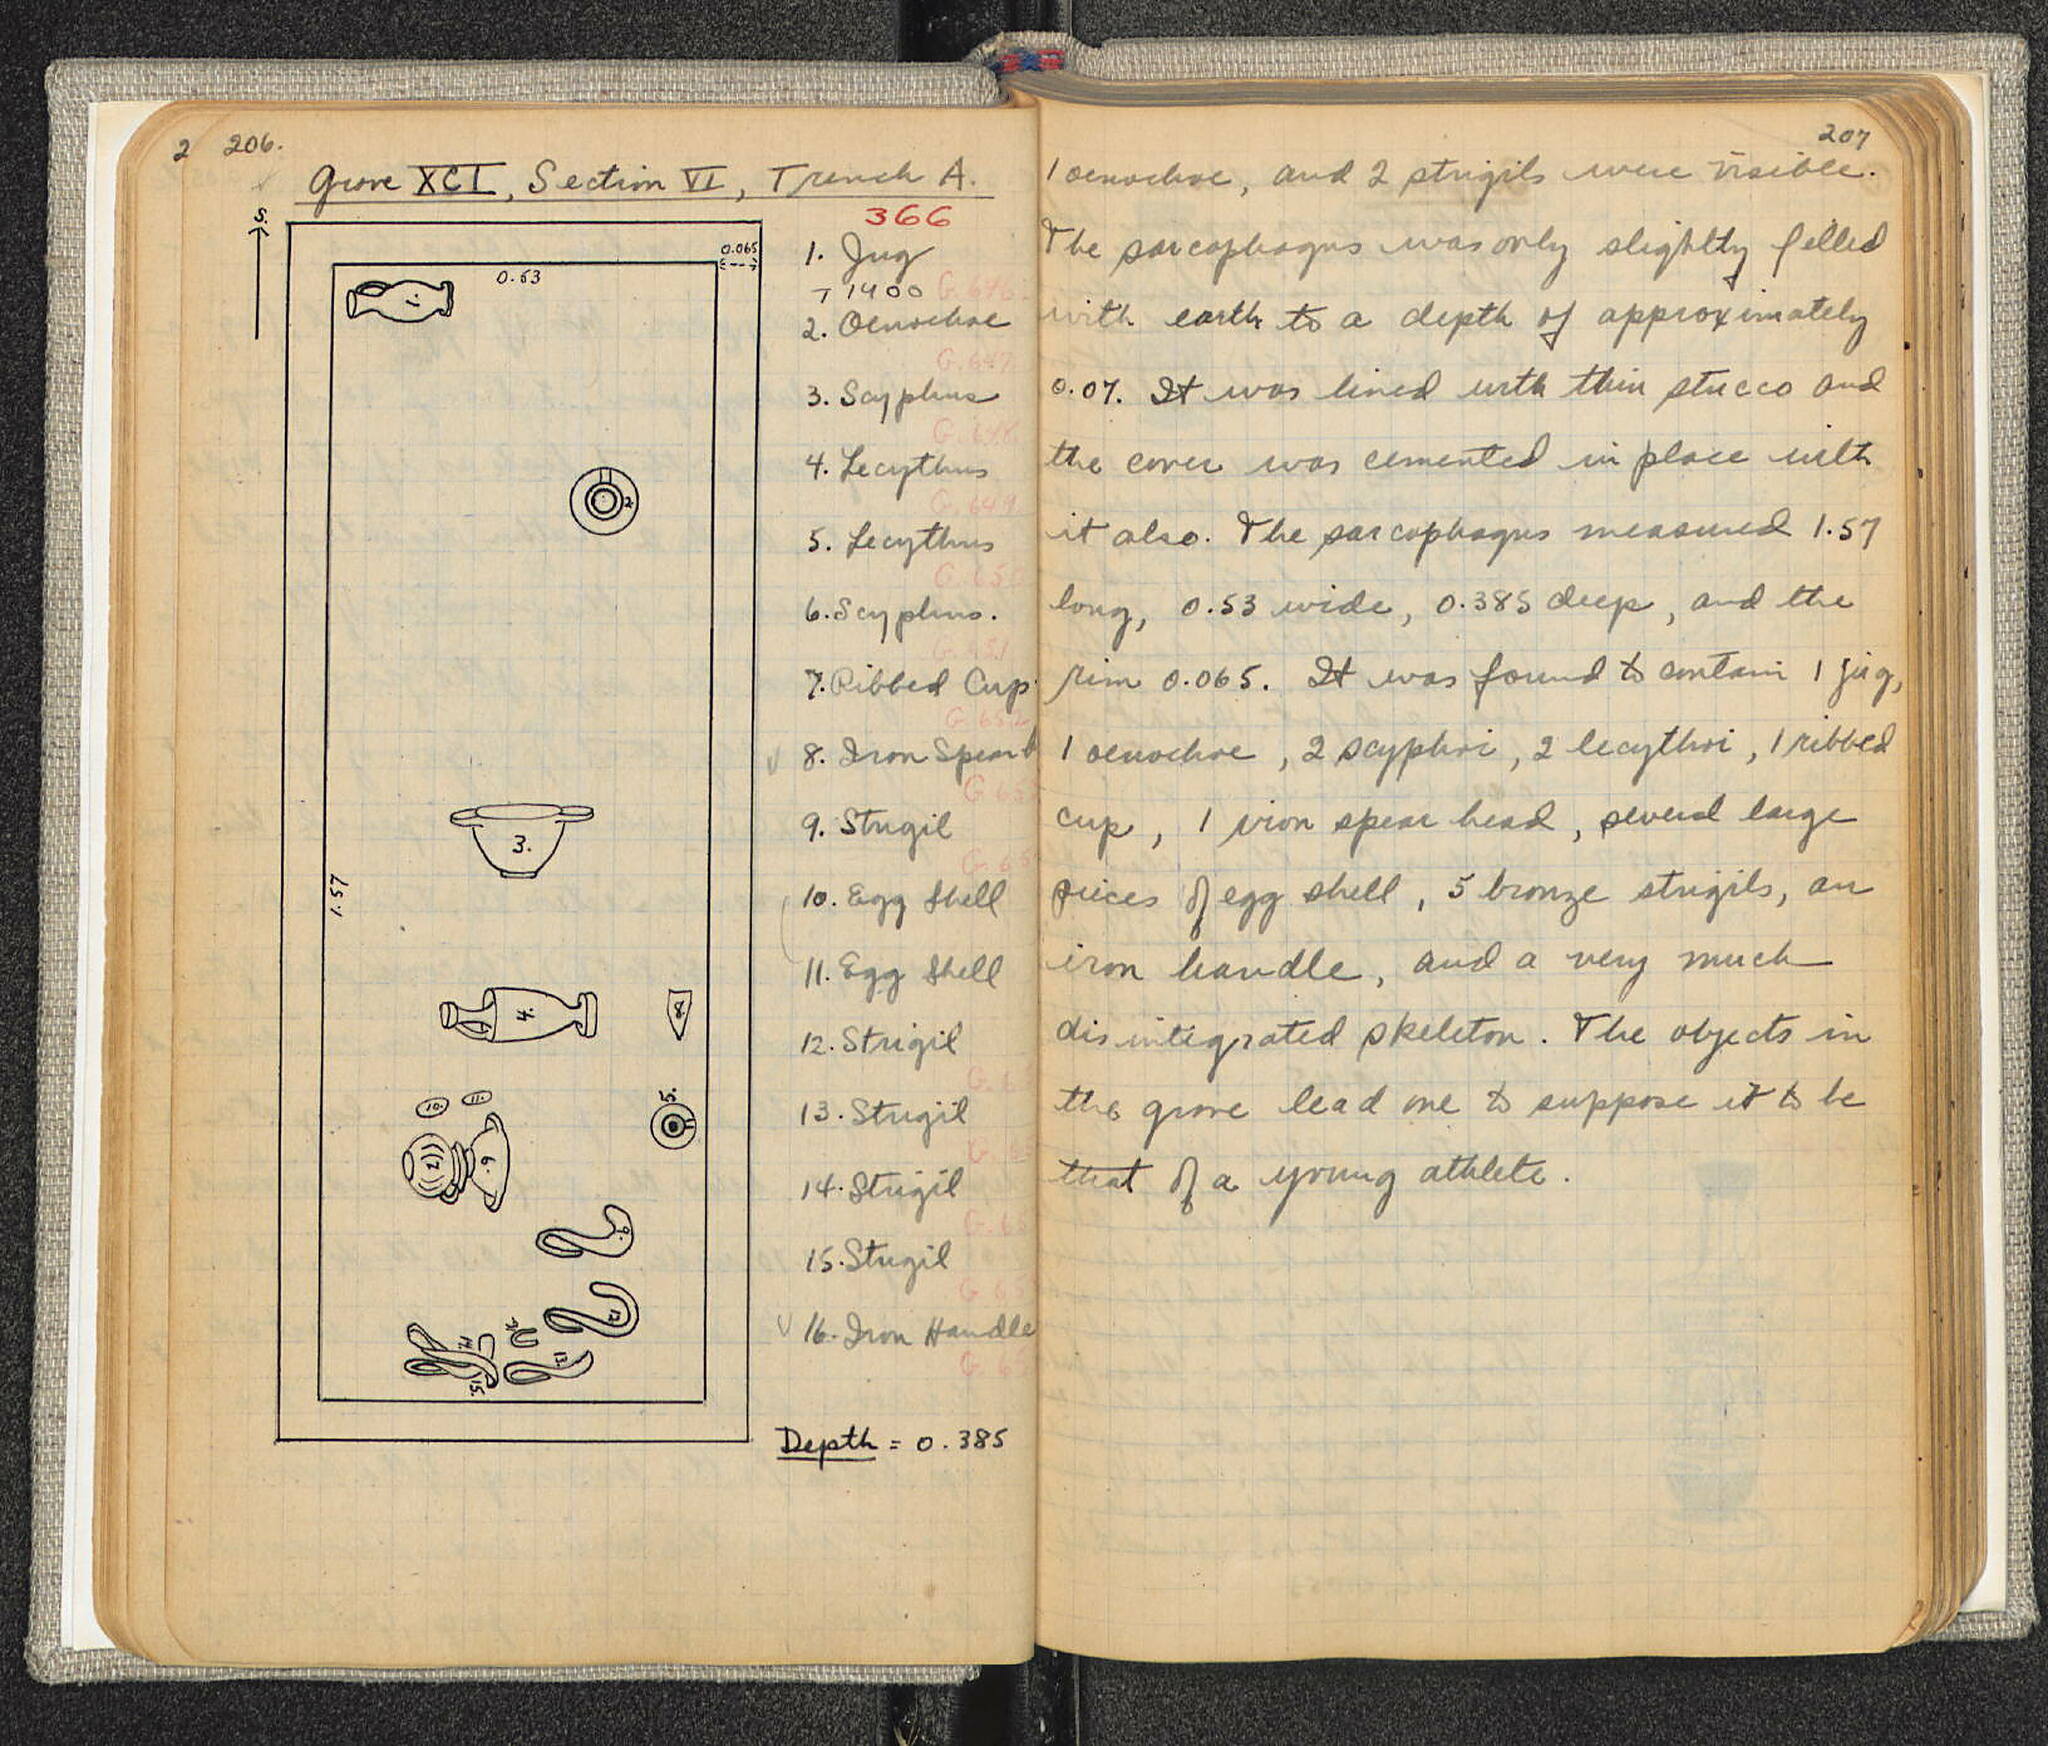 2 206.
Grave XCI, Section VI, Trench A.
366
S.
0.065
0.53
1.57
1.
2
3.
4.
8.
10.
11.
5.
7.
6.
9.
12.
16.
14.
13.
15.
1. Jug
T 1400 G.646
2. Oenochoe
G.647
3. Scyphus
G.648
4. Lecythus
G.649
5. Lecythus
G.650
6. Scyphus.
G.651
7. Ribbed Cup
G.652
8. Iron Spear
9. Strigil
10. Egg Shell
11. Egg Shell
12. Strigil
13. Strigil
14. Strigil
15. Strigil
16. Iron Handle
Depth = 0.385
207
1 oenochoe, and 2 strigils were visible.
The sarcophagus was only slightly filled
with earth to a depth of approximately
0.07. It was lined with thin stucco and
the cover was cemented in place with
it also. The sarcophagus measured 1.57
long, 0.53 wide, 0.385 deep, and the
rim 0.065. It was found to contain 1 jug,
1 oenochoe, 2 scyphoi, 2 lecythoi, 1 ribbed
cup, 1 iron spear head, several large
pieces of egg shell, 5 bronze strigils, an
iron handle, and a very much
disintegrated skeleton. The objects in
the grave lead one to suppose it to be
that of a young athlete.